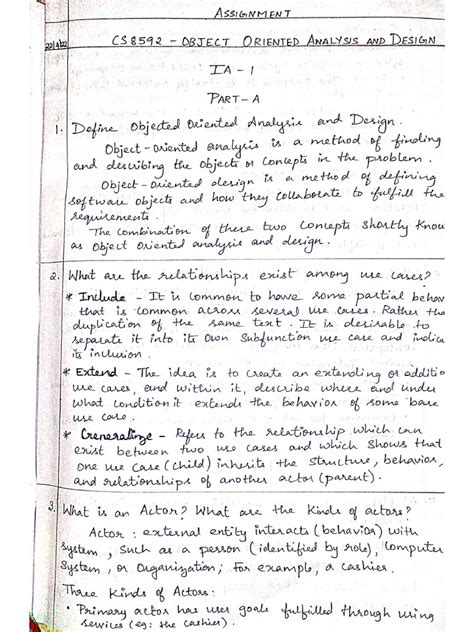 ASSIGNMENT
22/9/22 CS8592 - OBJECT ORIENTED ANALYSIS AND DESIGN
IA - 1
PART - A
1. Define Objected Oriented Analysis and Design.
Object-oriented analysis is a method of finding
and describing the objects or Concepts in the problem.
Object-oriented design is a method of defining
software objects and how they Collaborate to fulfill the
requirements.
The Combination of these two Concepts Shortly Know
as Object Oriented analysis and design.
2. What are the relationships exist among use cases?
* Include - It is Common to have some partial behav
that is Common across several use Cases. Rather tha
duplication of the same text. It is desirable to
separate it into its Own Subfunction use case and indica
its inclusion.
* Extend - The idea is to Create an extending or additio
use cases, and within it, describe where and under
what condition it extends the behavior of some base
use case.
* Generalize - Refers to the relationship which can
exist between two use Cases and which Shows that
one use Case (Child) inherits the Structure, behavior,
and relationships of another actor (parent).
3. What is an Actor? What are the Kinds of actors?
Actor : external entity interacts (behavior) with
System, Such as a person (identified by role), Computer
System, or Organization; For example, a Cashier.
Three Kinds of Actors:
• Primary actor has user goals fulfilled through using
services (eg: the Cashier).